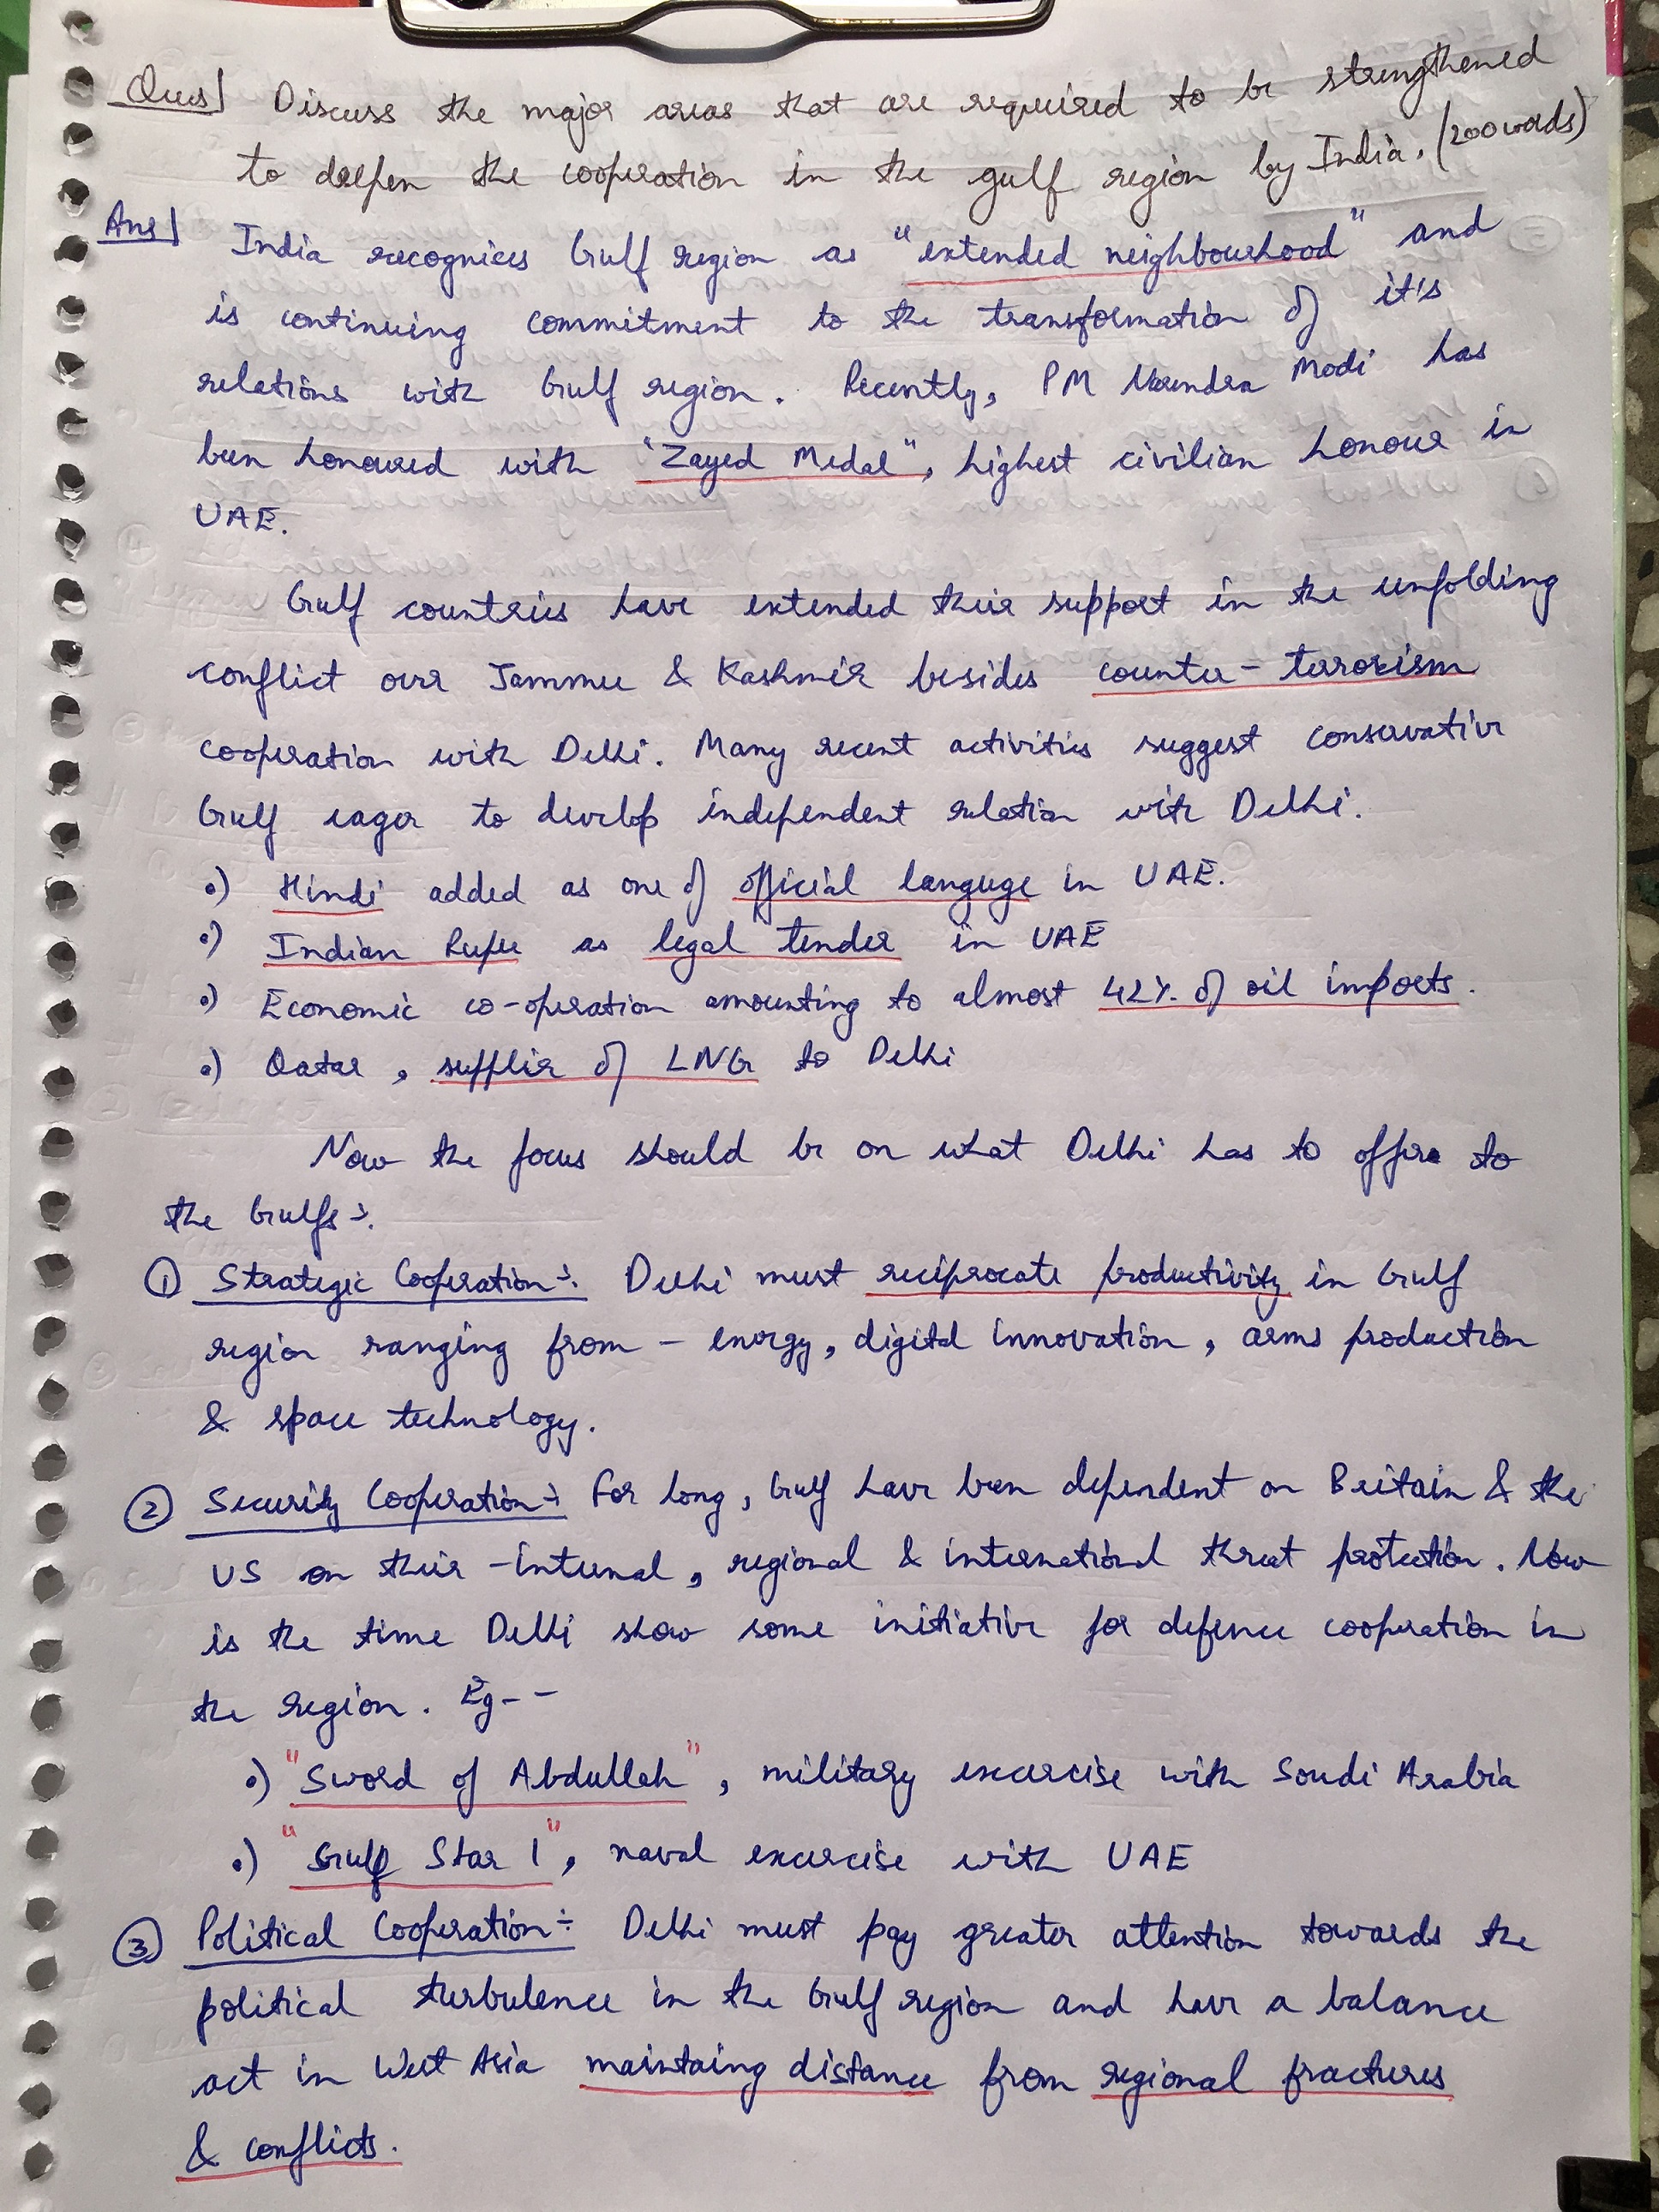 Ques| Discuss the major areas that are required to be strengthened
to deepen the cooperation in the gulf region by India. (200 words)
Ans| India recognices Gulf region as "extended neighbourhood" and
is continuing commitment to the transformation of it's
relations with Gulf region. Recently, PM Narendra Modi has
been honoured with "Zayed Medal", highest civilian honour in
UAE.
Gulf countries have extended their support in the unfolding
conflict over Jammu & Kashmir besides counter-terrorism
cooperation with Delhi. Many recent activities suggest conservative
Gulf eager to develop independent relation with Delhi.
•) Hindi added as one of official languge in UAE.
•) Indian Rupee as legal tender in UAE
•) Economic co-operation amounting to almost 42% of oil imports.
•) Qatar, supplier of LNG to Delhi
Now the focus should be on what Delhi has to offer to
the Gulfs :-
① Strategic Cooperation :- Delhi must reciprocate productivity in Gulf
region ranging from - energy, digital innovation, arms production
& space technology.
② Security Cooperation :- For long, Gulf have been dependent on Britain & the
US on their - internal, regional & international threat protection. Now
is the time Delhi show some initiative for defence cooperation in
the region. Eg--
•) "Sword of Abdullah", military excercise with Saudi Arabia
•) "Gulf Star 1", naval excercise with UAE
③ Political Cooperation :- Delhi must pay greater attention towards the
political turbulence in the Gulf region and have a balance
act in West Asia maintaing distance from regional fractures
& conflicts.